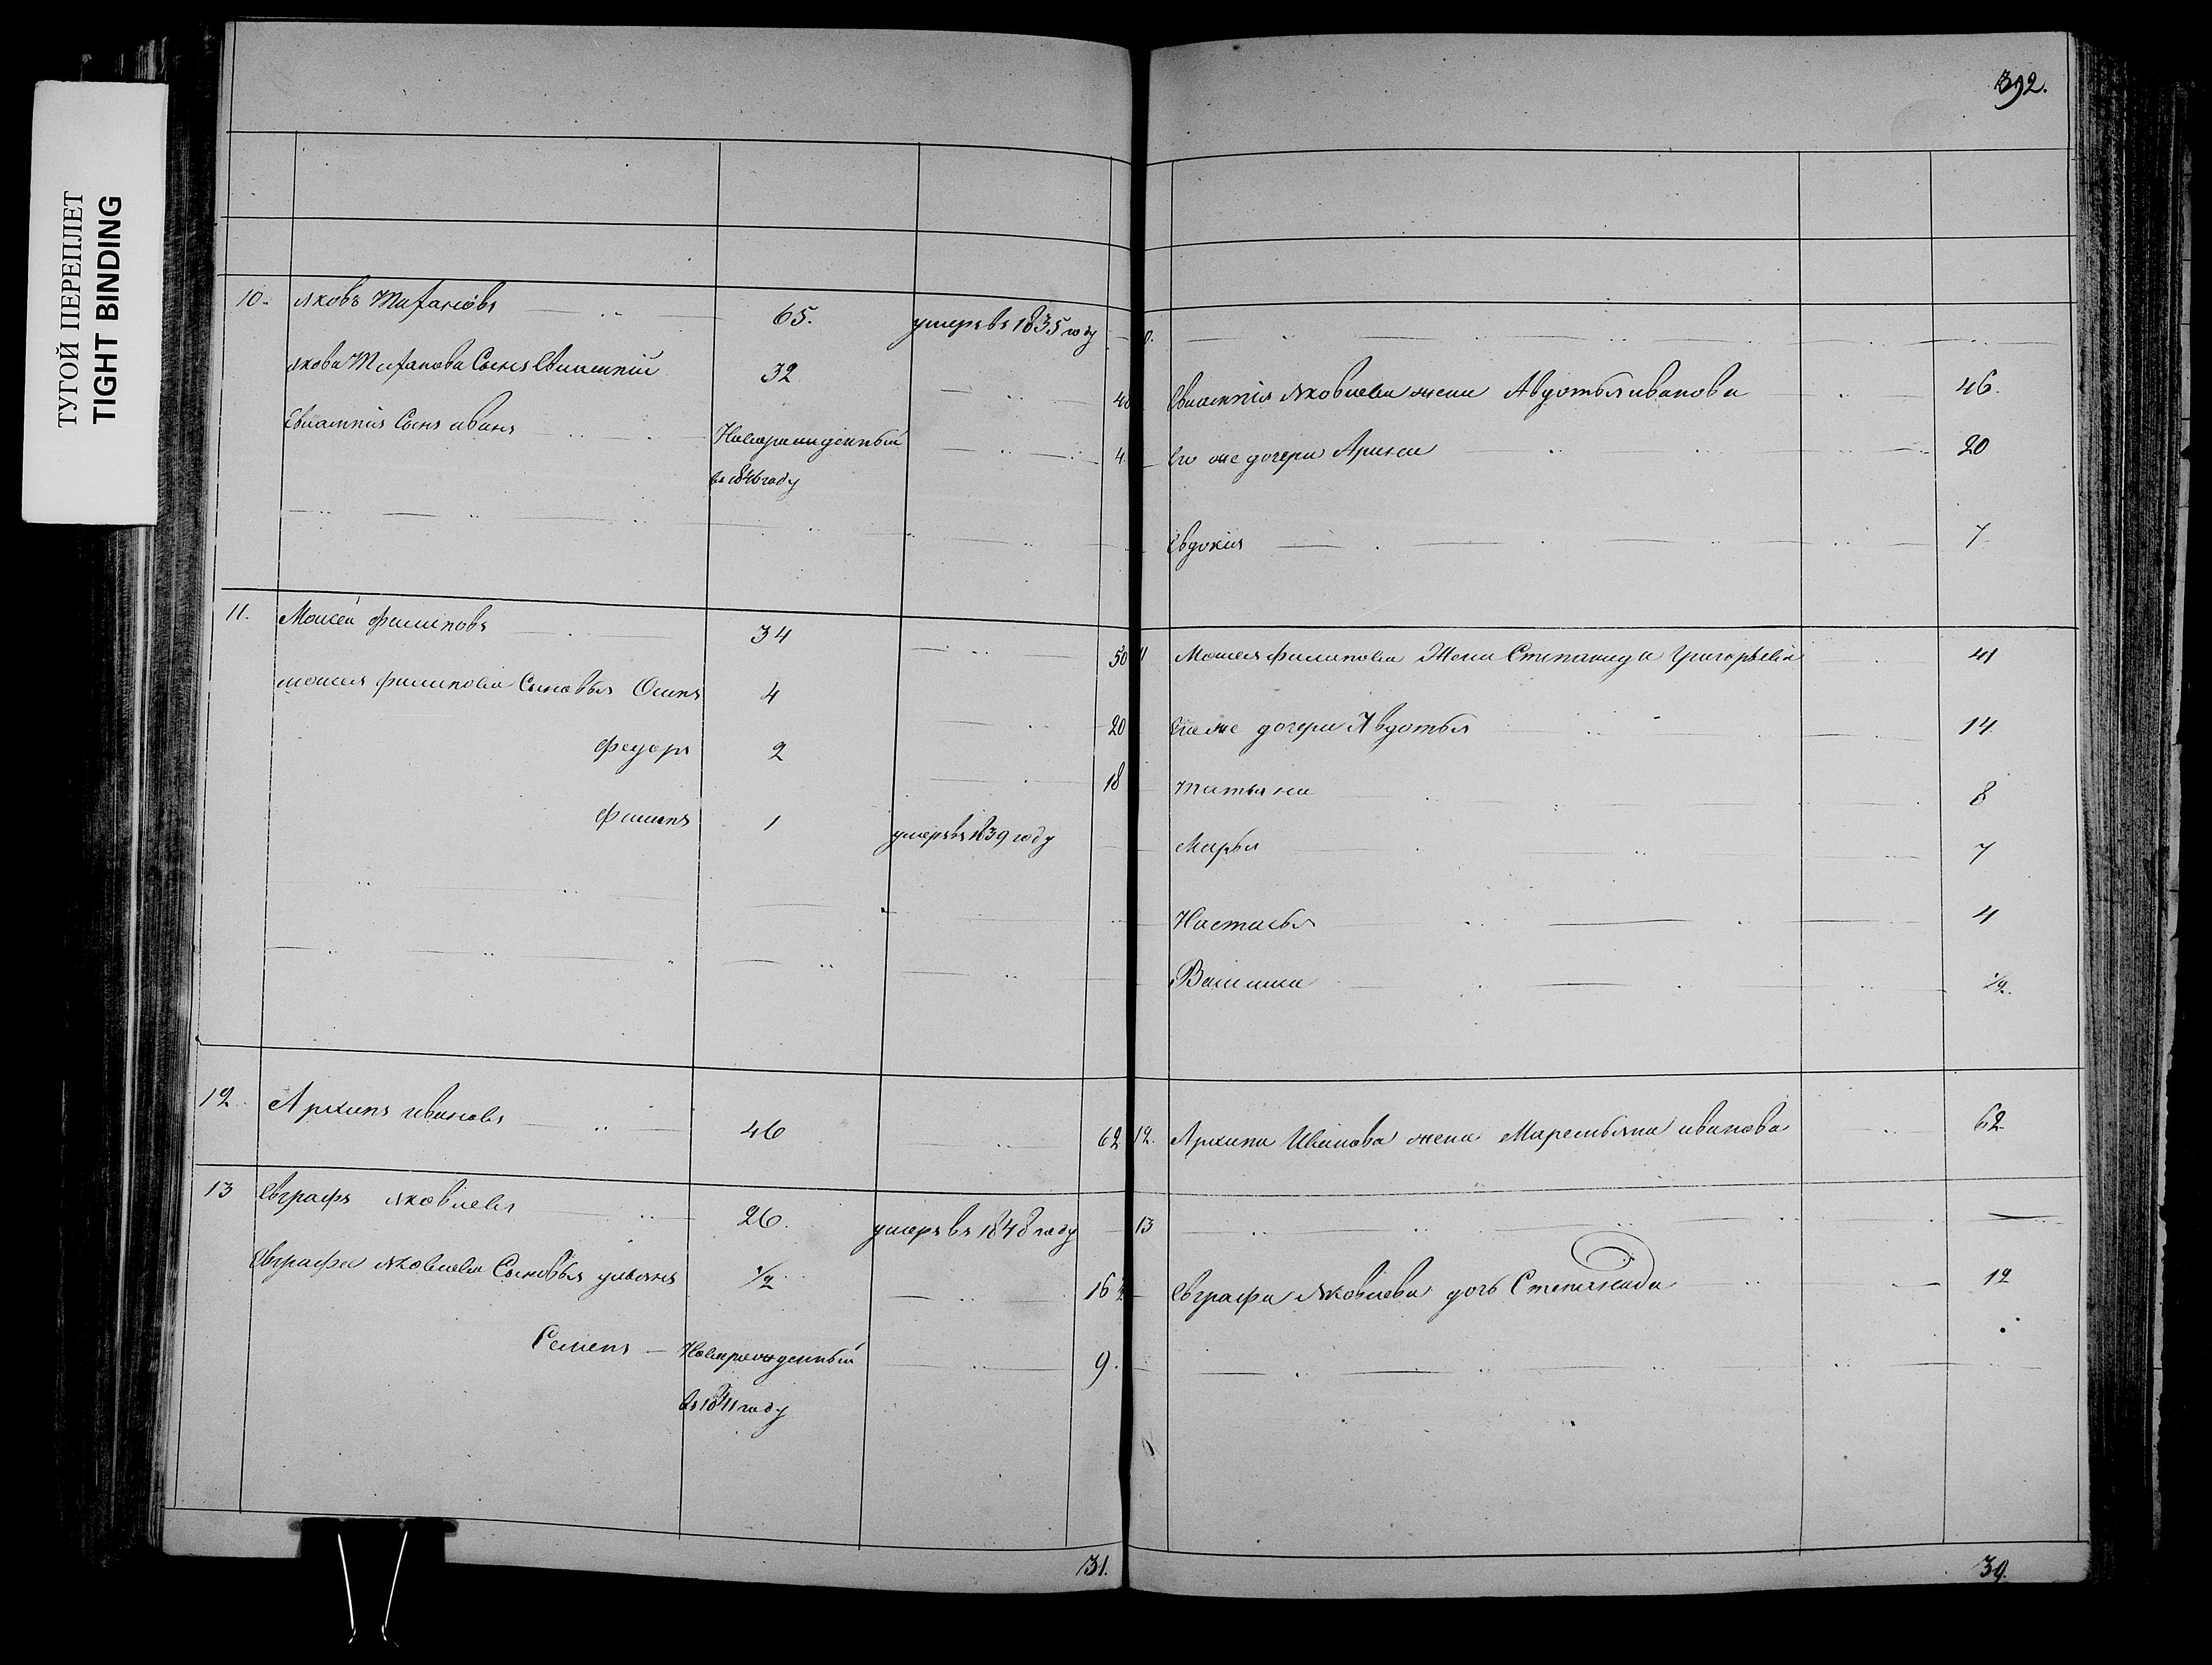 ТУГОЙ ПЕРЕПЛЕТ
TIGHT BINDING
10. Яковъ 65. умеръ въ 1835 году
Якова Сынъ 32
Сынъ иванъ Новорожденный 4
въ 1846 году
11. Моисей Филиповъ 34 50
Моисея Филипова Сыновья Осипъ 4 20
Федоръ 2 18
Филипъ 1 умеръ въ 1839 году
12 Архипъ ивановъ 46 62
13 Евграфъ Яковлевъ 26. умеръ въ 1848 году
Евграфа Яковлева Сыновья ульянъ 1/2 16 1/2
Семенъ Новорожденный 9.
въ 1841 году
31.
392.
Яковлева жена Авдотья иванова 46.
Его же дочери Арина 20
Евдокия 7
11 Моисея Филипова Жена Степанида Григорьева 41
Его же дочери Авдотья 14
Татьяна 8
Марья 7
Настасья 4
1/2.
12. Архипа Иванова жена Маремьяна иванова 62
13
Евграфа Яковлева дочь Степанида 12
39.